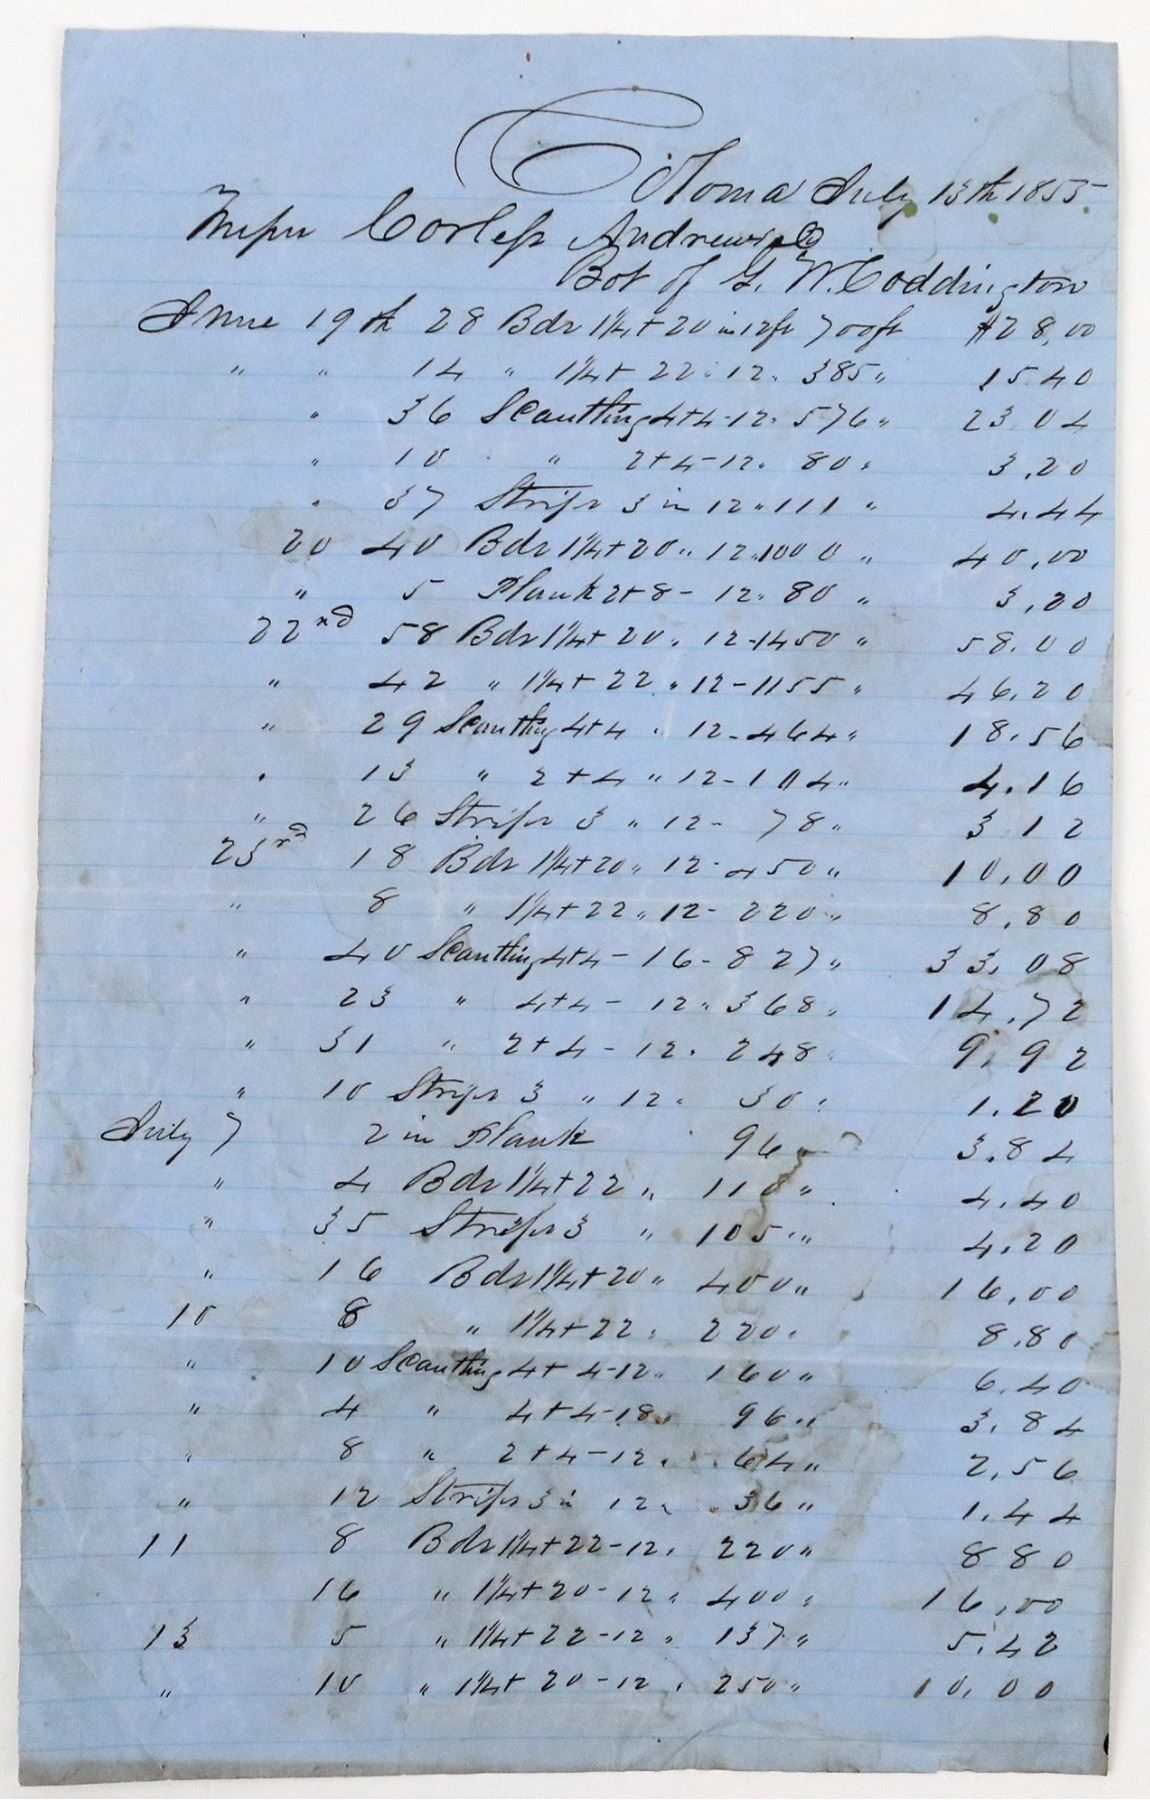 Coloma July 13th 1855
Messrs Corless Andrews & Co
Bot of G. W. Coddington
June 19th 28 Bds 1¼+20 in 12ft 700ft $28,00
" " 14 " 1¼+22 " 12 " 385 " 15.40
" 36 Scantling 4+4-12 " 576 " 23.04
" 10 " 2+4-12 " 80 " 3.20
" 37 Strips 3 in 12 " 111 " 4.44
20 40 Bds 1¼+20 " 12 " 1000 " 40.00
" 5 Plank 2+8 - 12 " 80 " 3,20
22nd 58 Bds 1¼+20 " 12-1450 " 58.00
" 42 " 1¼+22 " 12-1155 " 46.20
" 29 Scantling 4+4 " 12-464 " 18.56
" 13 " 2+4 " 12-104 " 4.16
" 26 Strips 3 " 12- 78 " 3 12
23rd 18 Bds 1¼+20 " 12-450 " 10,00
" 8 " 1¼+22 " 12- 220 " 8.80
" 40 Scantling 4+4 - 16-827 " 33.08
" 23 " 4+4 - 12 " 368 " 14.72
" 31 " 2+4 - 12 " 248 " 9.92
" 10 Strips 3 " 12 " 30 " 1.20
July 7 2 in Plank 96 " 3.84
" 4 Bds 1¼+22 " 110 " 4.40
" 35 Strips 3 " 105 " 4.20
" 16 Bds 1¼+20 " 400 " 16,00
10 8 " 1¼+22 " 220 " 8.80
" 10 Scantling 4+4-12 " 160 " 6.40
" 4 " 4+4-18 " 96 " 3.84
" 8 " 2+4-12 " 64 " 2,56
" 12 Strips 3 in 12 " 36 " 1.44
11 8 Bds 1¼+22-12 " 220 " 8 80
16 " 1¼+20-12 " 400 " 16,00
13 5 " 1¼+22-12 " 137 " 5.42
" 10 " 1¼+20-12 " 250 " 10.00